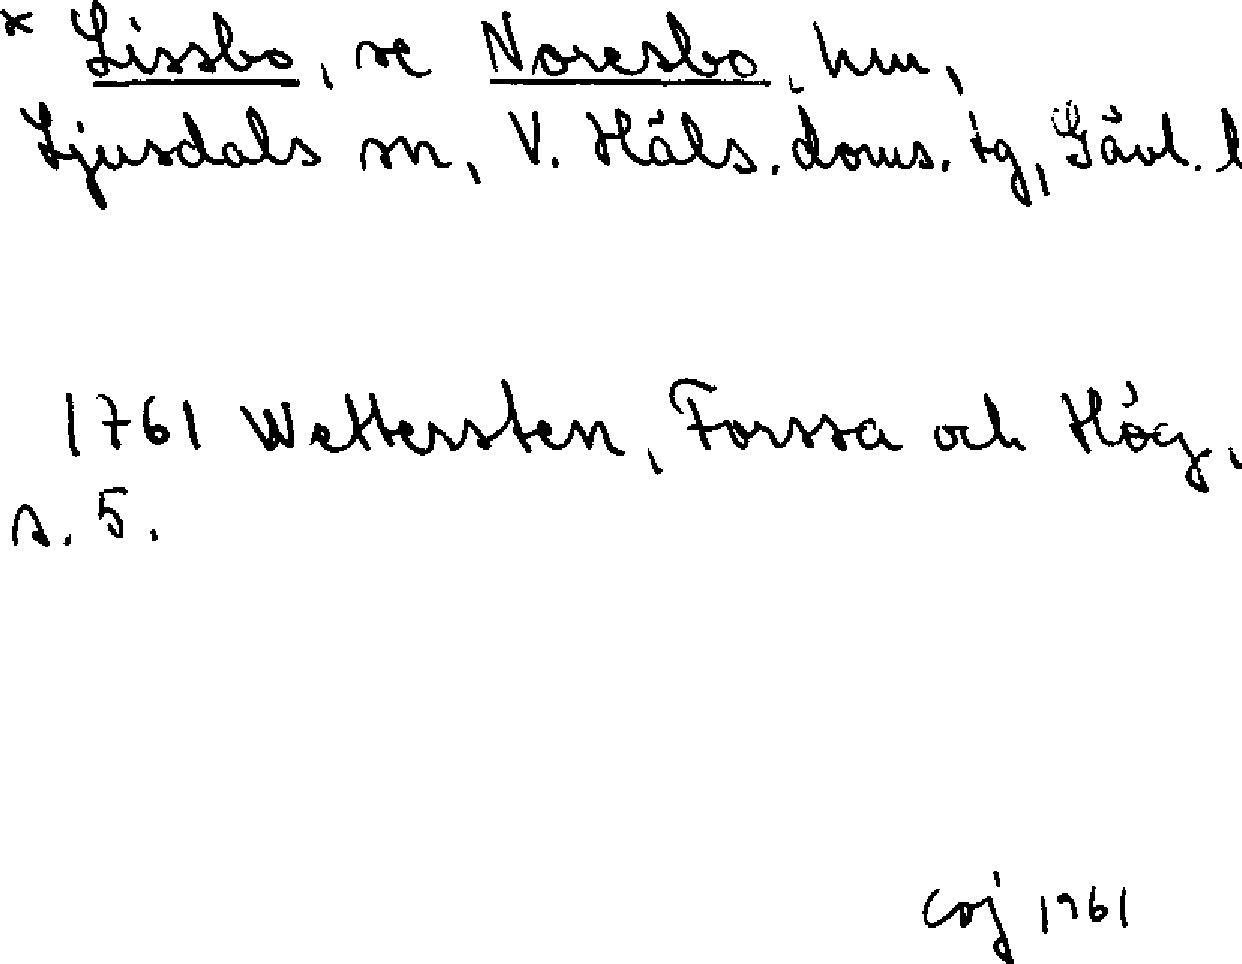 * Lissbo, se Noresbo, hm,
Ljusdals sn, V. Häls. doms. tg, Gävl. l
1761 Wettersten, Forssa och Hög,
s. 5.
COJ 1961